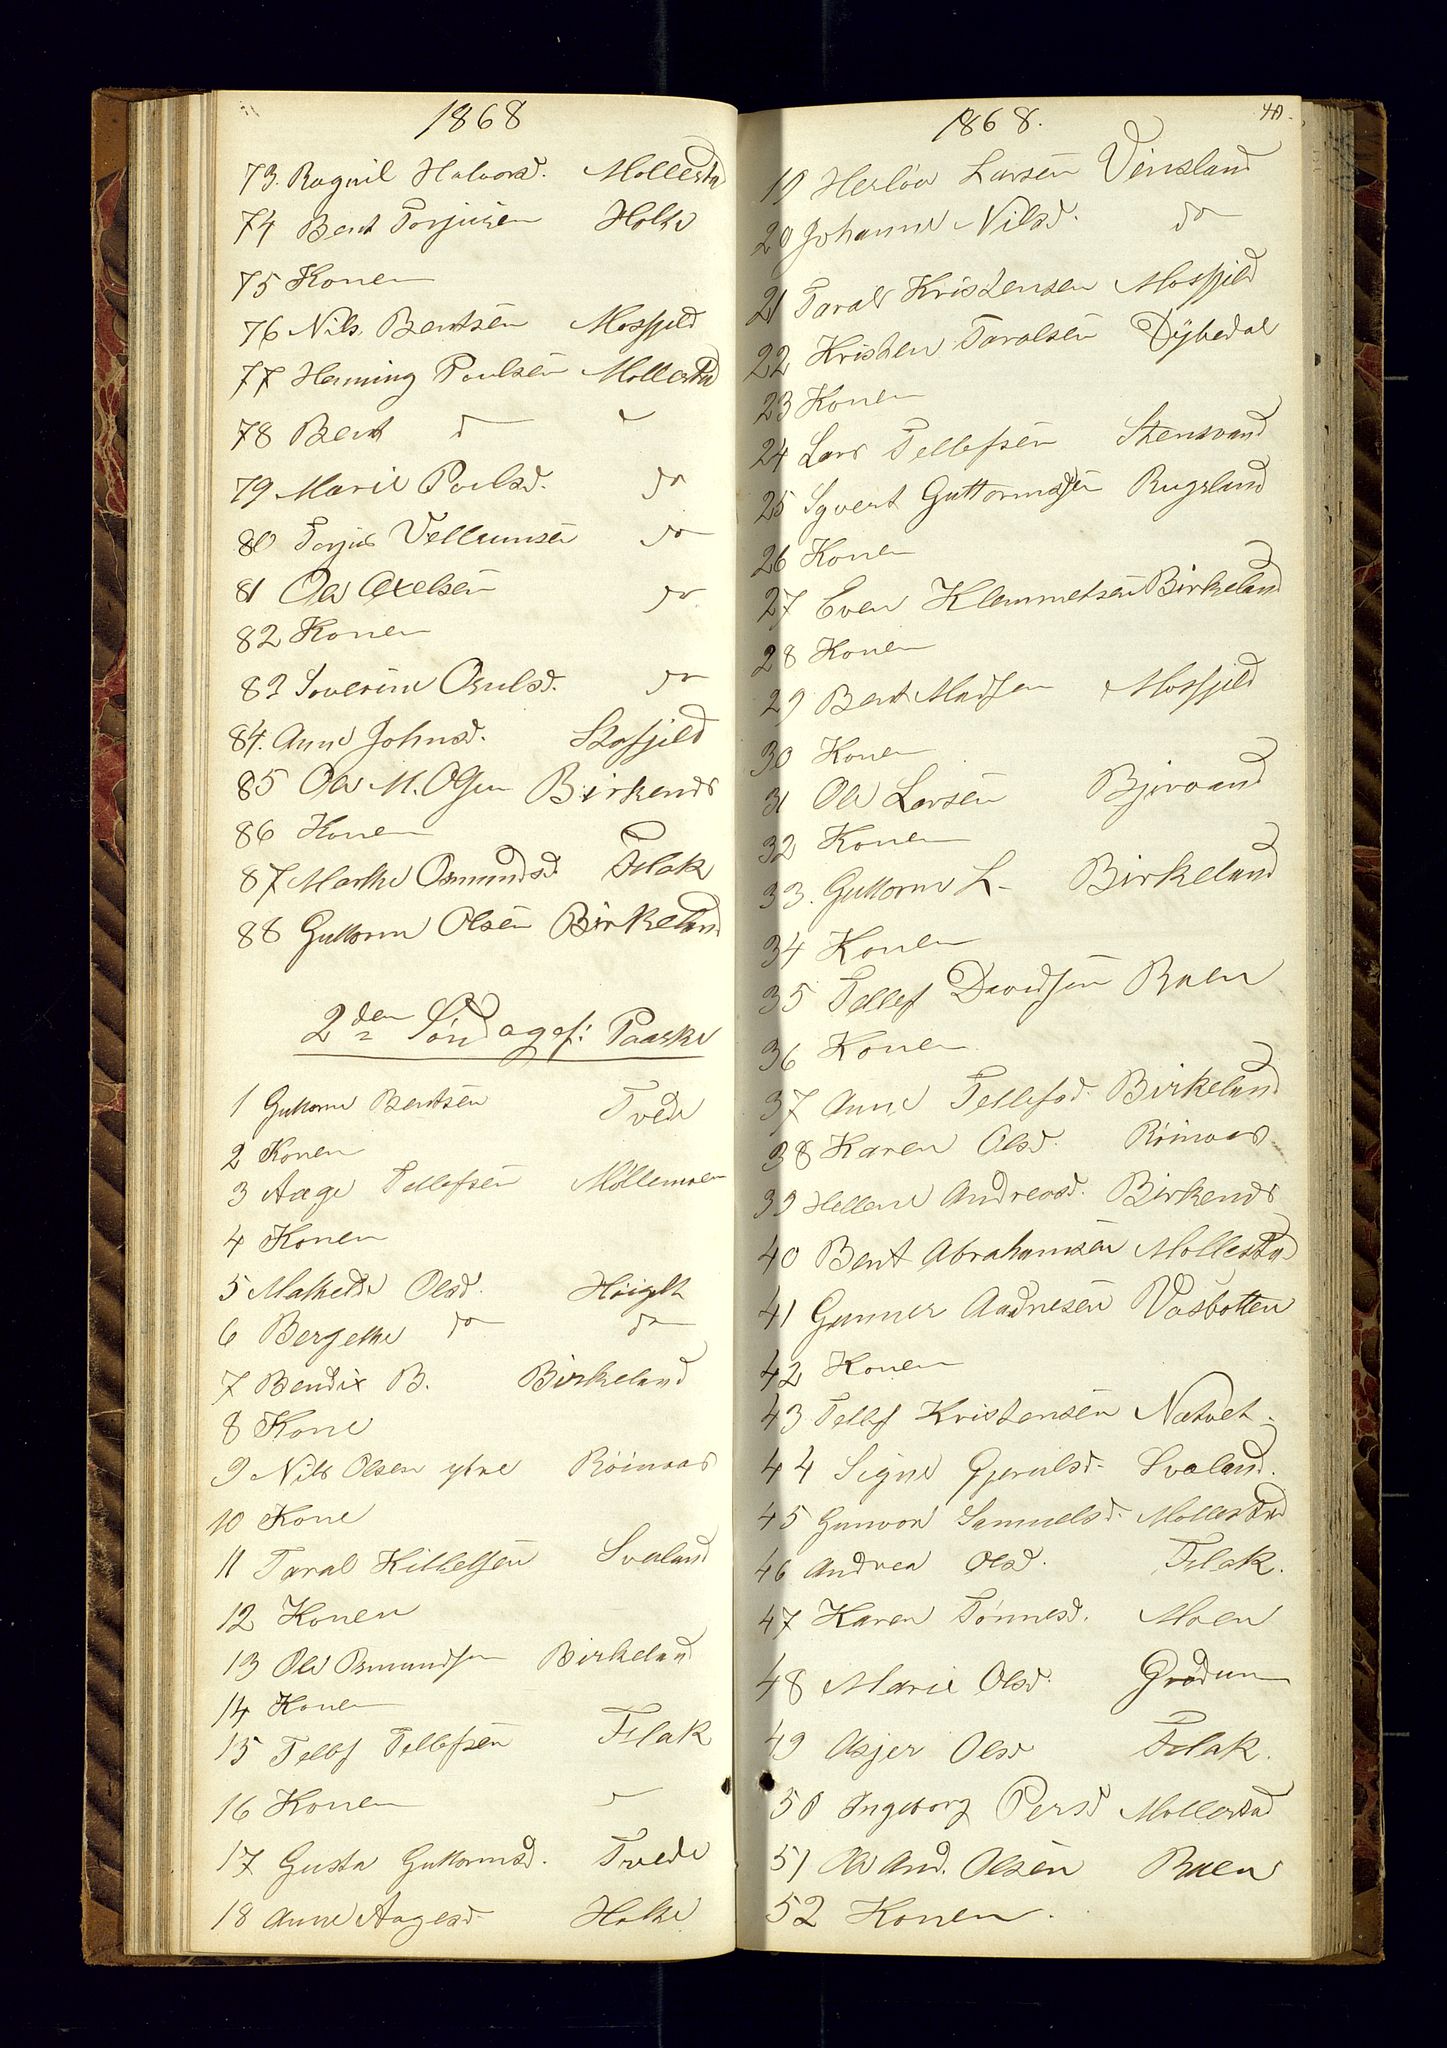 1868
73. Ragnil Halvorsd. Mollestad
74 Bent Torjusen Holte
75 Konen
76 Nils Bentsen Mosfjeld
77 Henning Poulsen Mollestad
78 Bent do do
79 Marie Poulsd. do
80 Torjus Vellumsen do
81 Ole Axelsen do
82 Konen
83 Severine Osulsd. do
84. Anne Johnsd. Skofjeld
85 Ole M. Olsen Birkends
86 Konen
87 Marthe Osmundsd. Flak
88 Guttorm Olsen Birkeland
2den Søndag ef: Paaske
1 Guttorm Bentsen Tvede
2 Konen
3 Aage Tellefsen Mollemoen
4 Konen
5 Mathilde Olsd. Høigilt
6 Bergethe do do
7 Bendix B. Birkeland
8 Kone
9 Nils Olsen ytre Röinaas
10 Kone
11 Taral Kittelsen Svaland
12 Konen
13 Ole Osmundsen Birkeland
14 Konen
15 Tellf Tellefsen Flak
16 Konen do
17 Gusta Guttormsd. Tvede
18 Anne Aagesd. Holte
1868.
40.
19 Herlov Larsen Vinsland
20 Johanne Nilsd. do
21 Taral Kristensen Mosfjeld
22 Kristen Taralsen Dybedal
23 Konen
24 Lars Tellefsen Stensvand
25 Syvert Guttormsen Rugsland
26 Konen
27 Even Klemmetsen Birkeland
28 Konen
29 Bent Madsen Mosfjeld
30 Konen
31 Ole Larsen Bjorvand
32 Konen
33. Guttorm L. Birkeland
34 Konen
35 Tellef Davidsen Raen
36 Konen
37 Anne Tellefsd. Birkeland
38 Karen Olsd. Röinaas
39 Hellene Andreasd. Birkends
40 Bent Abrahamsen Mollestad
41 Gunner Aadnesen Vasbotten
42 Konen
43 Tellf Kristensen Natvet
44 Signe Gjerulsd. Svaland.
45 Gunvor Samuelsd. Mollestad
46 Andrea Olsd. Flak.
47 Karen Tönnesd. Moen
48 Marie Olsd. Grödum
49 Asjer Olsd Flak.
50 Ingeborg Persd Mollestad
51 Ole And. Olsen Raen
52 Konen.